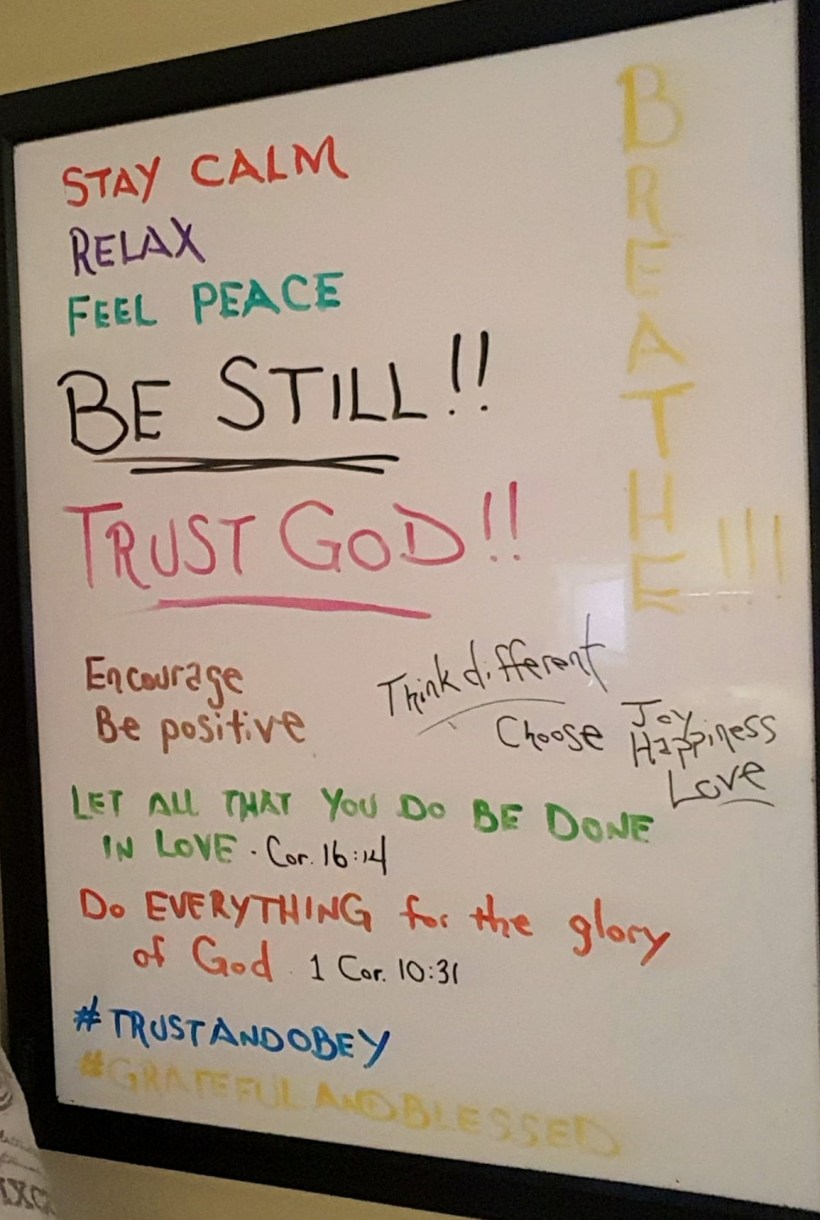 STAY CALM
RELAX
FEEL PEACE
BE STILL!!
TRUST GOD!!
BREATHE!!!
Encourage
Be positive
Think different
Choose Joy
Happiness
Love
LET ALL THAT YOU DO BE DONE
IN LOVE · Cor. 16:14
Do EVERYTHING for the glory
of God. 1 Cor. 10:31
#TRUSTANDOBEY
#GRATEFULANDBLESSED